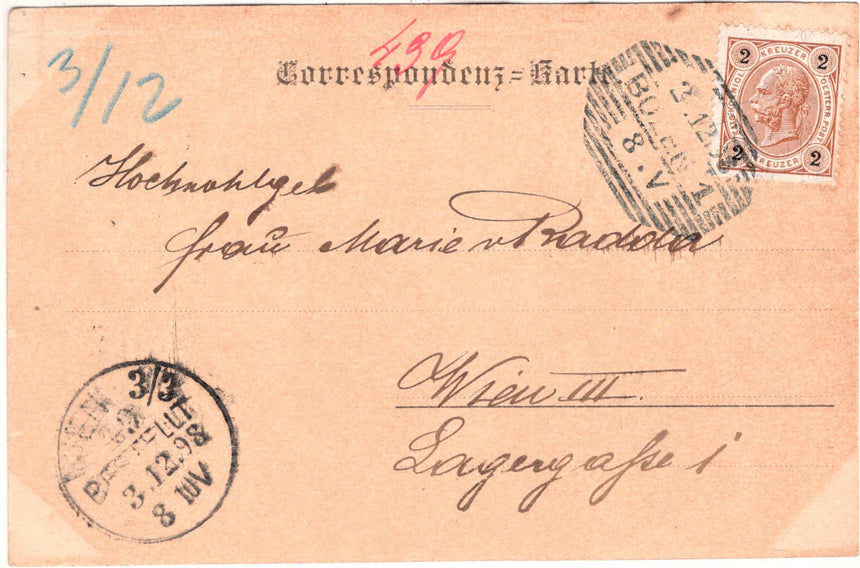 3/12
439
Correspondenz=Karte
2 KREUZER 2
KAIS. KÖNIGL. OESTERR. POST
2 KREUZER 2
BOZEN 1
3.12
8.V
Hochwohlgeb
Frau Marie v Radour
Wien III
Lagergasse 1
WIEN 3/3
BESTELLT
3.12.98
8 ¼ V